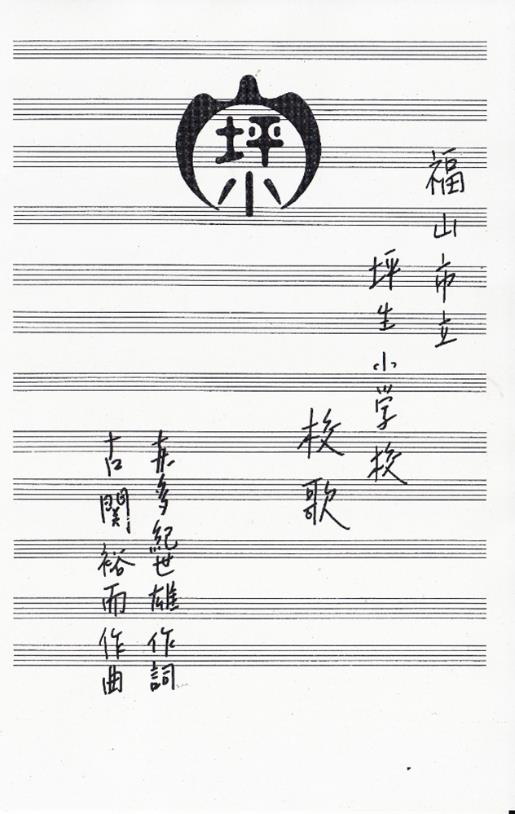 坪
小
福山市立
坪生小学校
校歌
喜多紀世雄作詞
古関裕而作曲